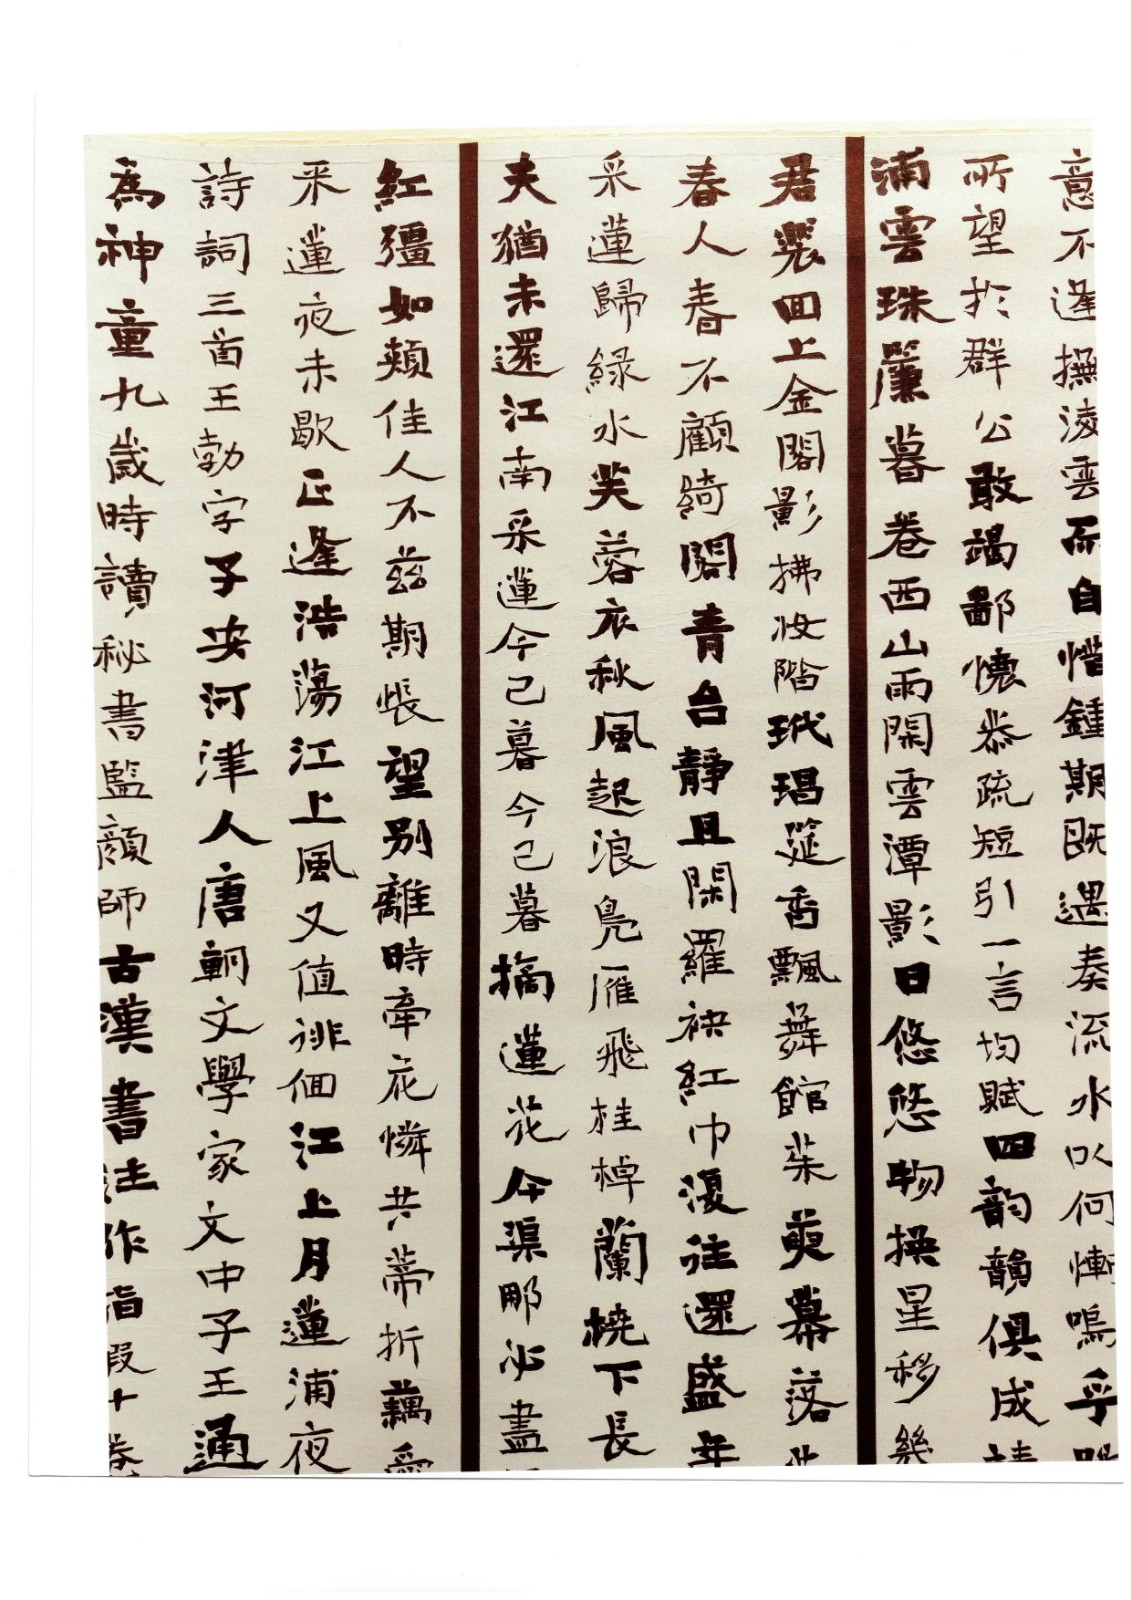 意不逢撫淩雲而自惜鍾期既遇奏流水以何慚嗚乎
所望於群公敢竭鄙懷恭疏短引一言均賦四韵韻俱成請
浦雲珠簾暮卷西山雨閑雲潭影日悠悠物換星移幾
君裴回上金閣影拂妝階玳瑁筵香飄舞館茱萸幕落
春人春不顧綺閣青台靜且閑羅袂紅巾復往還盛年
采蓮歸綠水芙蓉衣秋風起浪鳧雁飛桂棹蘭橈下長
夫猶未還江南采蓮今已暮今已暮摘蓮花今渠那必盡
紅彊如頰佳人不茲期悵望別離時牽花憐共蒂折藕愛
采蓮夜未歇正逢浩蕩江上風又值徘徊江上月蓮浦夜
詩詞三首王勃字子安河津人唐朝文學家文中子王通
為神童九歲時讀秘書監顏師古漢書注作指瑕十卷